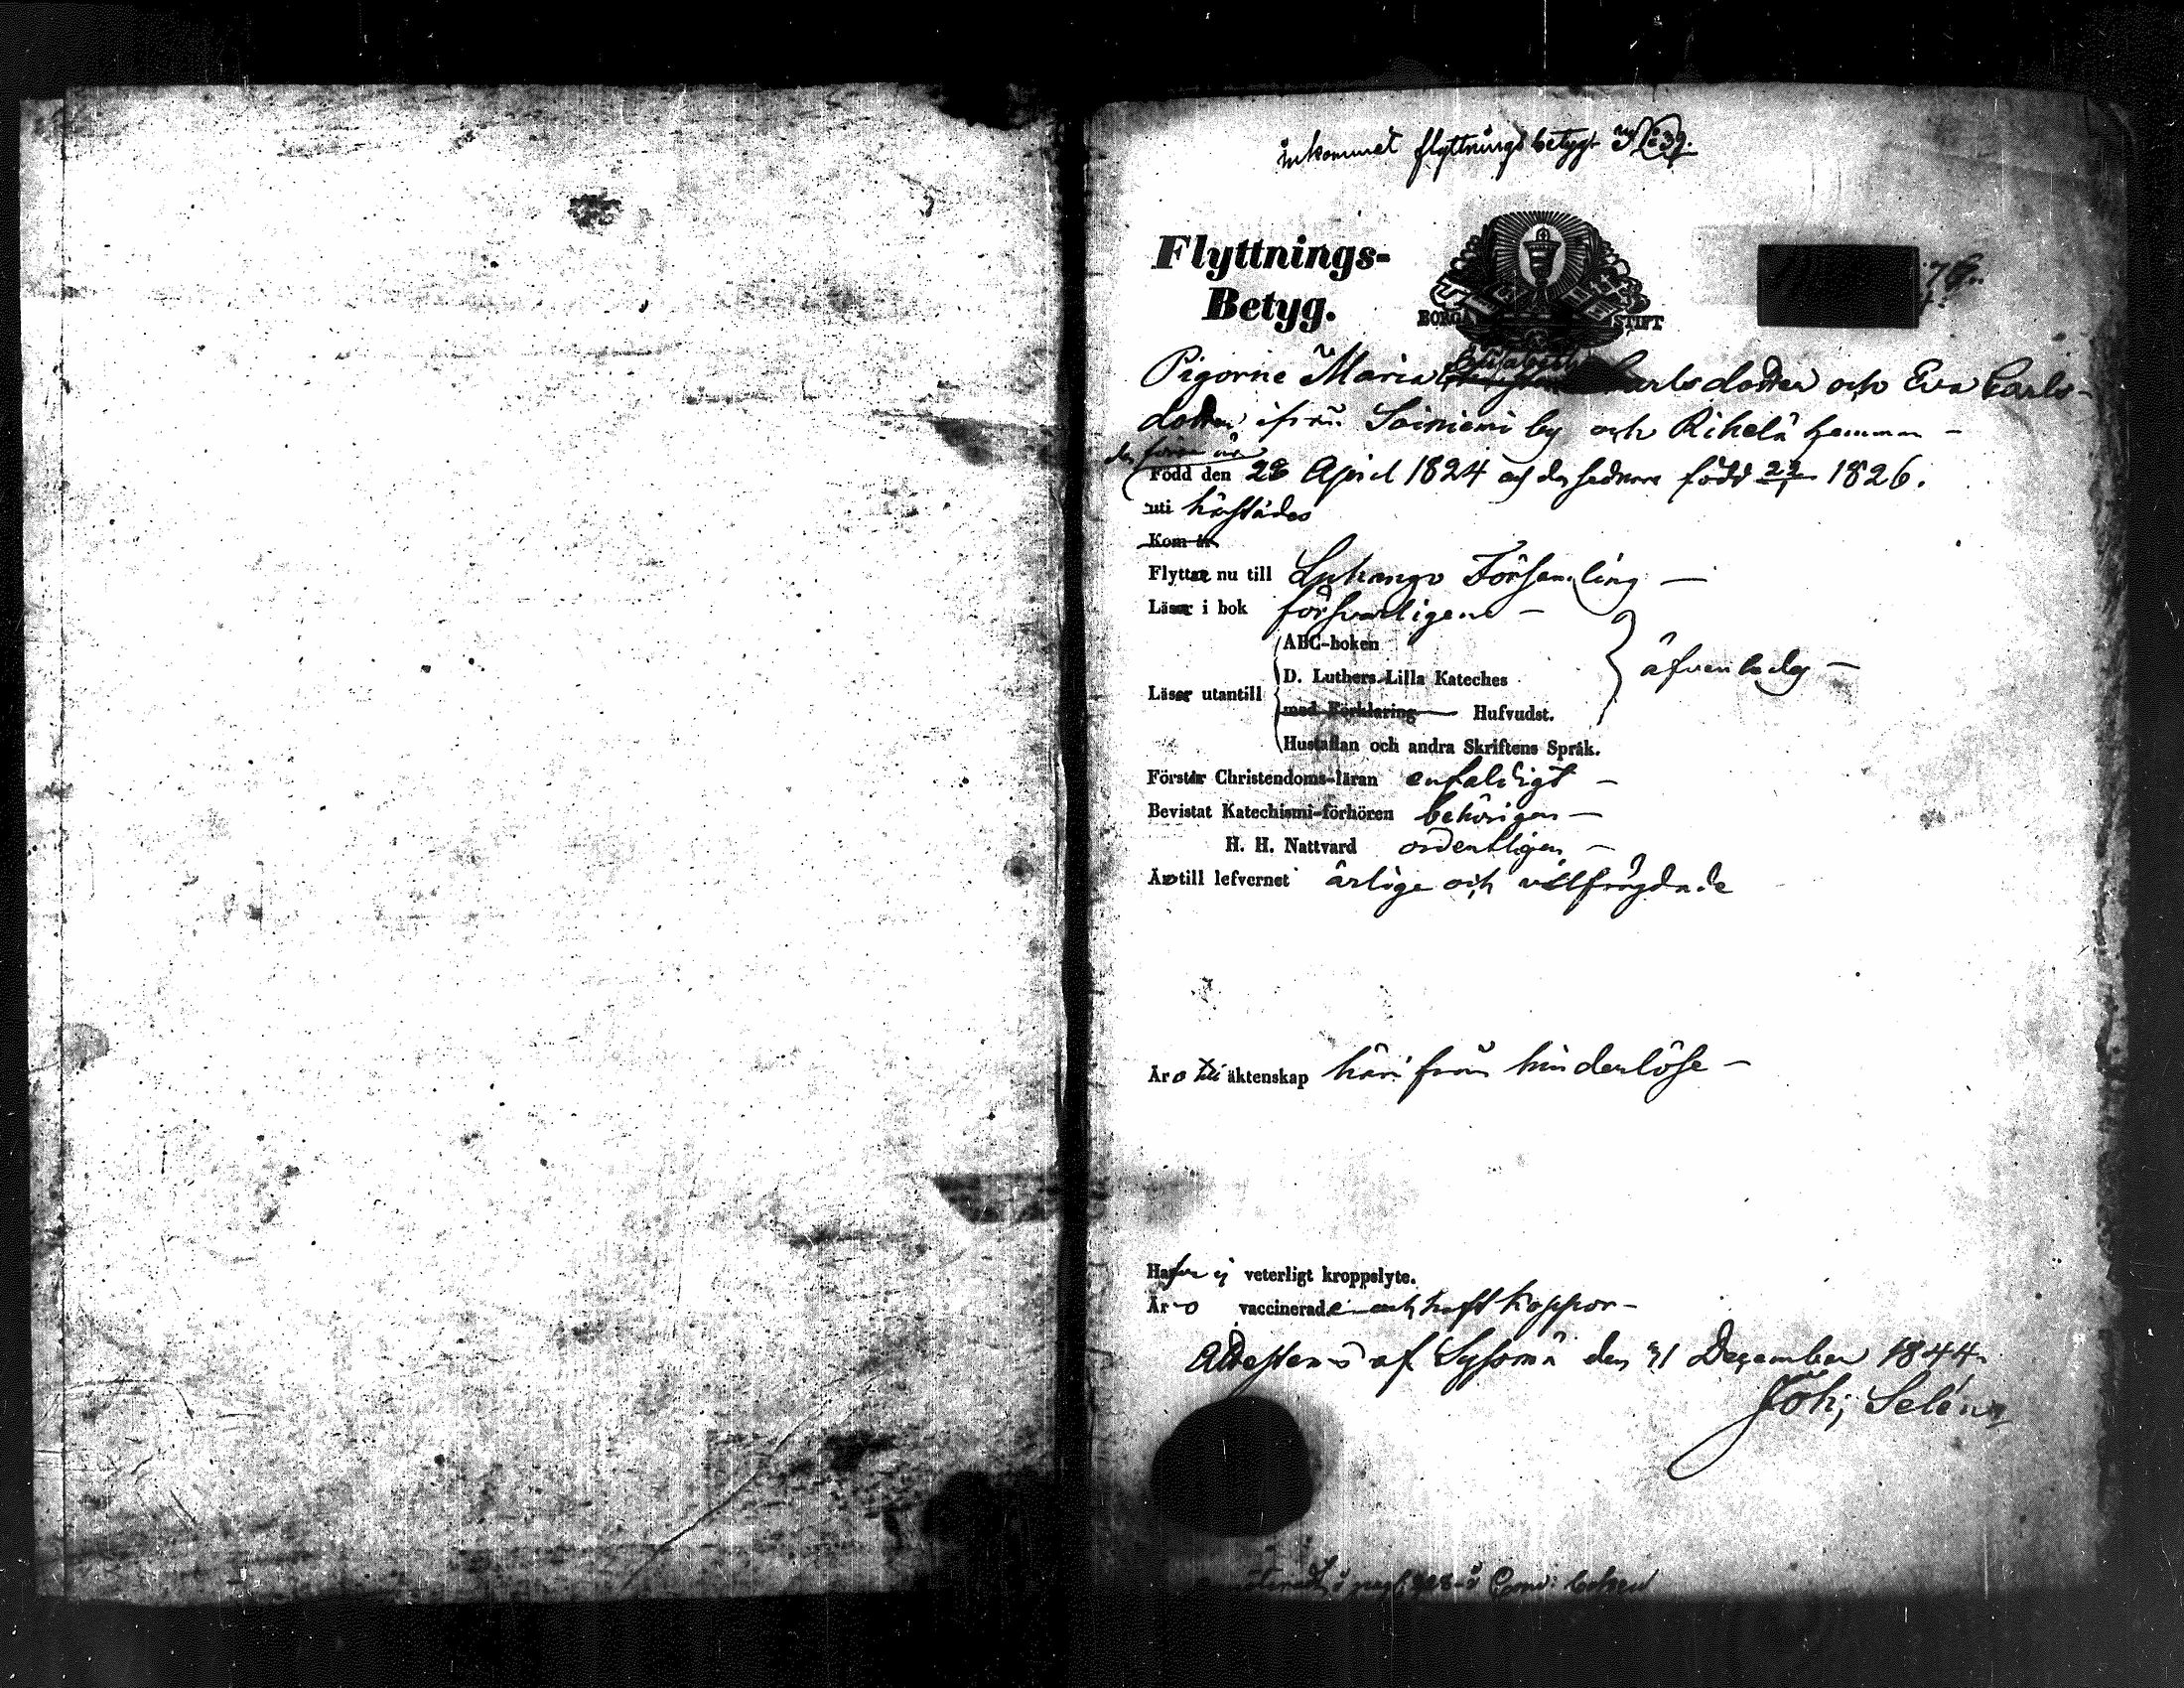 inkommet flyttnings betyg N 39.
Flyttnings-
Betyg.
BORGÅ STIFT
76.
Pigorne Maria Elisabeth Carlsdotter och Eva Carls-
dotter ifrån Soiniemi by och Rihelä hemman -
den förra är
Född den 28 April 1824 och den sednare född 22/1 1826.
uti härstädes
Kom år
Flyttar nu till Luhango Församling -
Läser i bok försvarligen -
ABC-boken
D. Luthers Lilla Kateches
Läser utantill äfvenledes -
med Förklaring Hufvudst.
Hustaflan och andra Skriftens Språk.
Förstår Christendoms-läran enfaldigt -
Bevistat Katechismi-förhören behörigen -
H. H. Nattvard ordentligen -
Äro till lefvernet ärlige och välfrägdade
Äro till äktenskap härifrån hinderlöse -
Hafva ej veterligt kroppslyte.
Äro vaccinerade och haft koppor -
Attesteras af Sysmä den 31 December 1844.
Joh; Selén